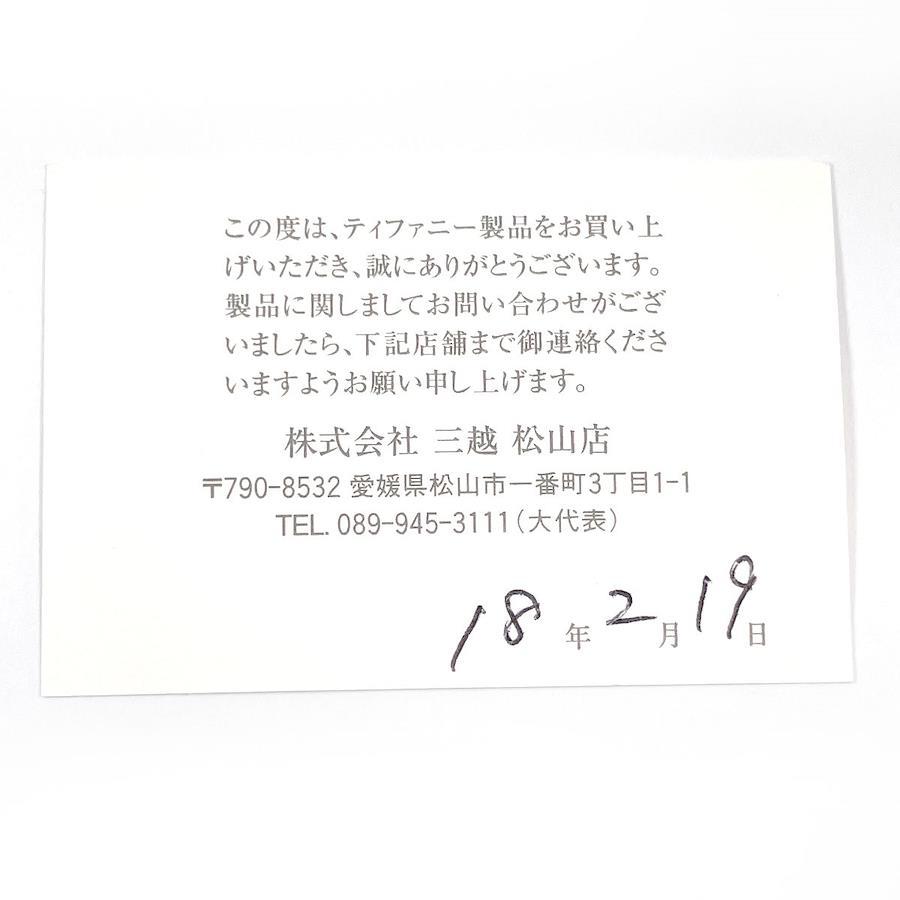 この度は、ティファニー製品をお買い上
げいただき、誠にありがとうございます。
製品に関しましてお問い合わせがござ
いましたら、下記店舗まで御連絡くださ
いますようお願い申し上げます。
株式会社 三越 松山店
〒790-8532 愛媛県松山市一番町3丁目1-1
TEL. 089-945-3111(大代表)
18年2月19日